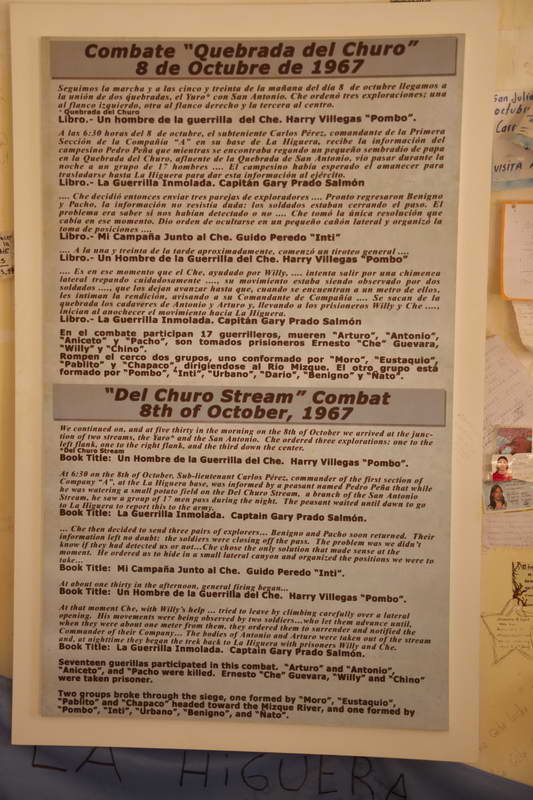 Combate "Quebrada del Churo"
8 de Octubre de 1967
Seguimos la marcha y a las cinco y treinta de la mañana del día 8 de octubre llegamos a
la unión de dos quebradas, el Yuro* con San Antonio. Che ordenó tres exploraciones: una
al flanco izquierdo, otra al flanco derecho y la tercera al centro.
* Quebrada del Churo
Libro.- Un hombre de la guerrilla del Che. Harry Villegas "Pombo".
A las 6:30 horas del 8 de octubre, el subteniente Carlos Pérez, comandante de la Primera
Sección de la Compañía "A" en su base de La Higuera, recibe la información del
campesino Pedro Peña que mientras se encontraba regando un pequeño sembradío de papa
en la Quebrada del Churo, afluente de la Quebrada de San Antonio, vio pasar durante la
noche a un grupo de 17 hombres .... El campesino había esperado el amanecer para
trasladarse hasta La Higuera para dar esta información al ejército.
Libro.- La Guerrilla Inmolada. Capitán Gary Prado Salmón
.... Che decidió entonces enviar tres parejas de exploradores .... Pronto regresaron Benigno
y Pacho, la información no resistía duda: los soldados estaban cerrando el paso. El
problema era saber si nos habían detectado o no .... Che tomó la única resolución que
cabía en ese momento. Dio orden de ocultarse en un pequeño cañón lateral y organizó la
toma de posiciones ....
Libro.- Mi Campaña Junto al Che. Guido Peredo "Inti"
.... A la una y treinta de la tarde aproximadamente, comenzó un tiroteo general ....
Libro.- Un Hombre de la Guerrilla del Che. Harry Villegas "Pombo"
.... Es en ese momento que el Che, ayudado por Willy, .... intenta salir por una chimenea
lateral trepando cuidadosamente ...., su movimiento estaba siendo observado por dos
soldados ...., que los dejan avanzar hasta que, cuando se encuentran a un metro de ellos,
les intiman la rendición, avisando a su Comandante de Compañía .... Se sacan de la
quebrada los cadáveres de Antonio y Arturo y, llevando a los prisioneros Willy y Che ....,
inician al anochecer el movimiento hacia La Higuera.
Libro.- La Guerrilla Inmolada. Capitán Gary Prado Salmón
En el combate participan 17 guerrilleros, mueren "Arturo", "Antonio",
"Aniceto" y "Pacho", son tomados prisioneros Ernesto "Che" Guevara,
"Willy" y "Chino".
Rompen el cerco dos grupos, uno conformado por "Moro", "Eustaquio",
"Pablito" y "Chapaco", dirigiendose al Río Mizque. El otro grupo está
formado por "Pombo", "Inti", "Urbano", "Dario", "Benigno" y "Ñato".
"Del Churo Stream" Combat
8th of October, 1967
We continued on, and at five thirty in the morning on the 8th of October we arrived at the junc-
tion of two streams, the Yaro* and the San Antonio. Che ordered three explorations: one to the
left flank, one to the right flank, and the third down the center.
*Del Churo Stream
Book Title: Un Hombre de la Guerrilla del Che. Harry Villegas "Pombo".
At 6:30 on the 8th of October, Sub-lieutenant Carlos Pérez, commander of the first section of
Company "A", at the La Higuera base, was informed by a peasant named Pedro Peña that while
he was watering a small potato field on the Del Churo Stream, a branch of the San Antonio
Stream, he saw a group of 17 men pass during the night. The peasant waited until dawn to go
to La Higuera to report this to the army.
Book Title: La Guerrilla Inmolada. Captain Gary Prado Salmón.
... Che then decided to send three pairs of explorers... Benigno and Pacho soon returned. Their
information left no doubt: the soldiers were closing off the pass. The problem was we didn't
know if they had detected us or not...Che chose the only solution that made sense at the
moment. He ordered us to hide in a small lateral canyon and organized the positions we were to
take...
Book Title: Mi Campaña Junto al Che. Guido Peredo "Inti".
At about one thirty in the afternoon, general firing began...
Book Title: Un Hombre de la Guerrilla del Che. Harry Villegas "Pombo".
At that moment Che, with Willy's help ... tried to leave by climbing carefully over a lateral
opening. His movements were being observed by two soldiers...who let them advance until,
when they were about one meter from them, they ordered them to surrender and notified the
Commander of their Company... The bodies of Antonio and Arturo were taken out of the stream
and, at nighttime they began the trek back to La Higuera with prisoners Willy and Che.
Book Title: La Guerrilla Inmolada. Captain Gary Prado Salmón.
Seventeen guerillas participated in this combat. "Arturo" and "Antonio",
"Aniceto", and "Pacho" were killed. Ernesto "Che" Guevara, "Willy" and "Chino"
were taken prisoner.
Two groups broke through the siege, one formed by "Moro", "Eustaquio",
"Pablito" and "Chapaco" headed toward the Mizque River, and one formed by
"Pombo", "Inti", "Urbano", "Benigno", and "Ñato".
LA HiGUERA
San Julia
octubre
Carr
VISITA